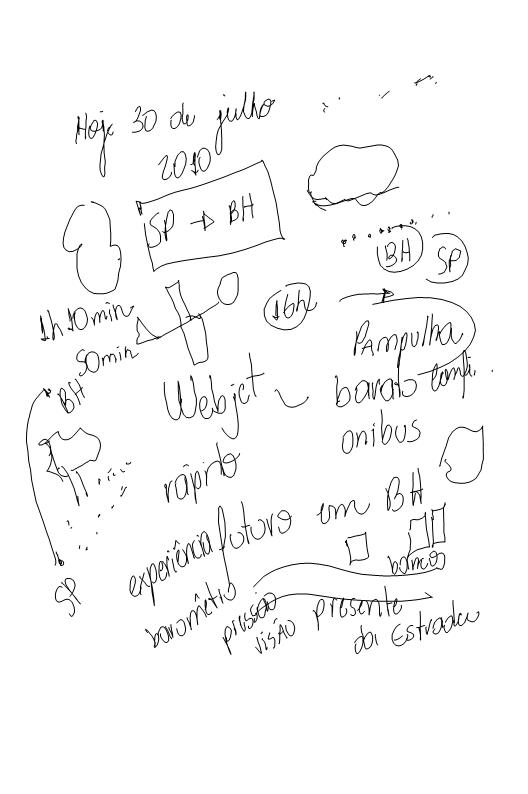 Hoje 30 de julho
2010
SP → BH
BH SP
1h10min
50min
16h
Pampulha
BH
Webjet
barato
onibus
rápido
experiência futuro em BH
bancos
SP
barométrio pressão presente
visão
Estrada